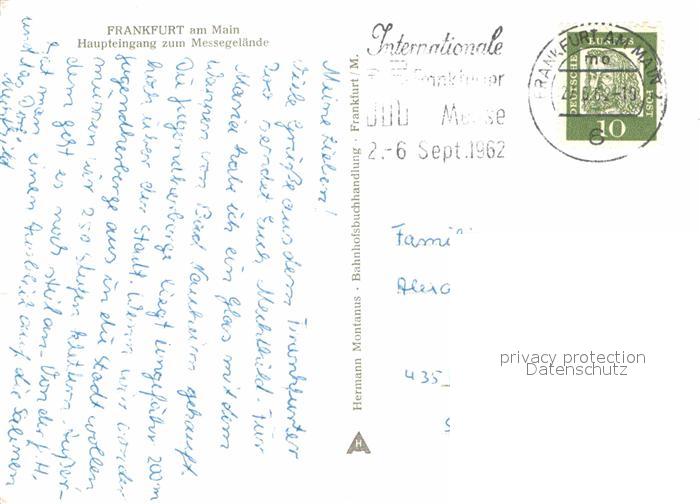 FRANKFURT am Main
Haupteingang zum Messegelände
Meine Lieben!
Viele Grüße aus dem Frankfurter
Zoo sendet Euch Mechthild. Für
Maria habe ich ein Glas mit dem
Wappen von Bad Nauheim gekauft.
Die Jugendherberge liegt ungefähr 200 m
hoch über der Stadt. Wenn wir von der
Jugendherberge aus in die Stadt wollen
müssen wir 250 Stufen klettern. Außer-
dem geht es noch steil an. Von der J.H.
hat man einen Ausblick auf die Salinen
und das Dorf.
Hermann Montanus · Bahnhofsbuchhandlung · Frankfurt/M.
H
Internationale
Frankfurter
Messe
2.-6 Sept.1962
FRANKFURT AM MAIN
mo
6
DEUTSCHE BUNDESPOST
10
Fami
435
privacy protection
Datenschutz